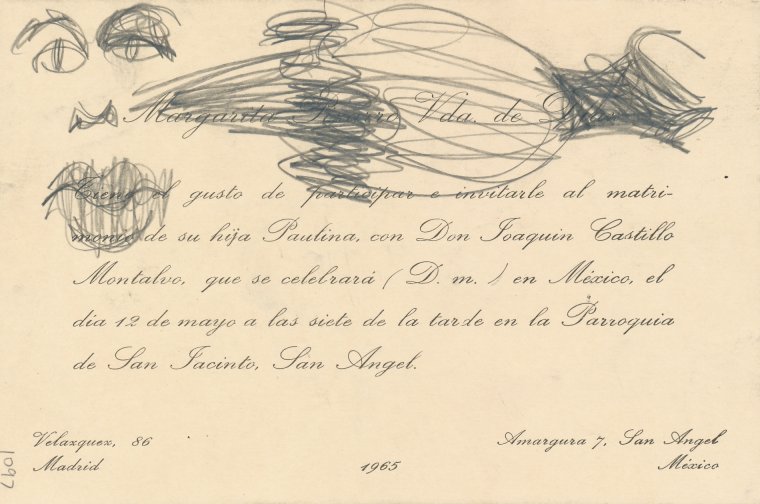 Margarita Romero Vda. de
Tiene el gusto de participar e invitarle al matri-
monio de su hija Paulina, con Don Joaquin Castillo
Montalvo, que se celebrará (D. m.) en México, el
dia 12 de mayo a las siete de la tarde en la Parroquia
de San Jacinto, San Angel.
Velazquez, 86
Madrid
1965
Amargura 7, San Angel
México
1097